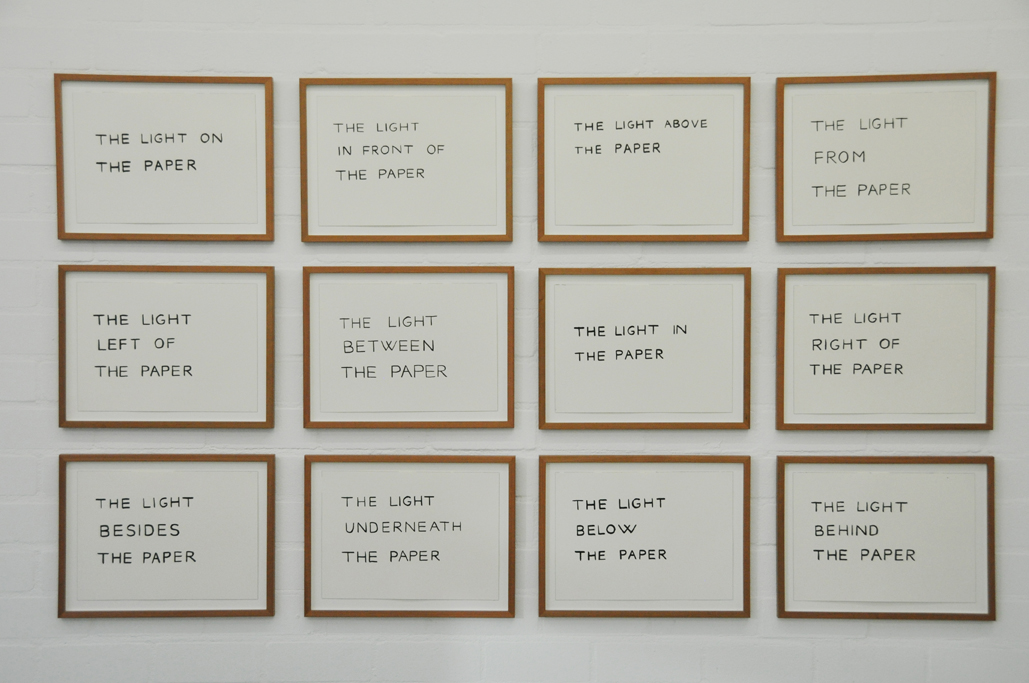 THE LIGHT ON
THE PAPER
THE LIGHT
IN FRONT OF
THE PAPER
THE LIGHT ABOVE
THE PAPER
THE LIGHT
FROM
THE PAPER
THE LIGHT
LEFT OF
THE PAPER
THE LIGHT
BETWEEN
THE PAPER
THE LIGHT IN
THE PAPER
THE LIGHT
RIGHT OF
THE PAPER
THE LIGHT
BESIDES
THE PAPER
THE LIGHT
UNDERNEATH
THE PAPER
THE LIGHT
BELOW
THE PAPER
THE LIGHT
BEHIND
THE PAPER